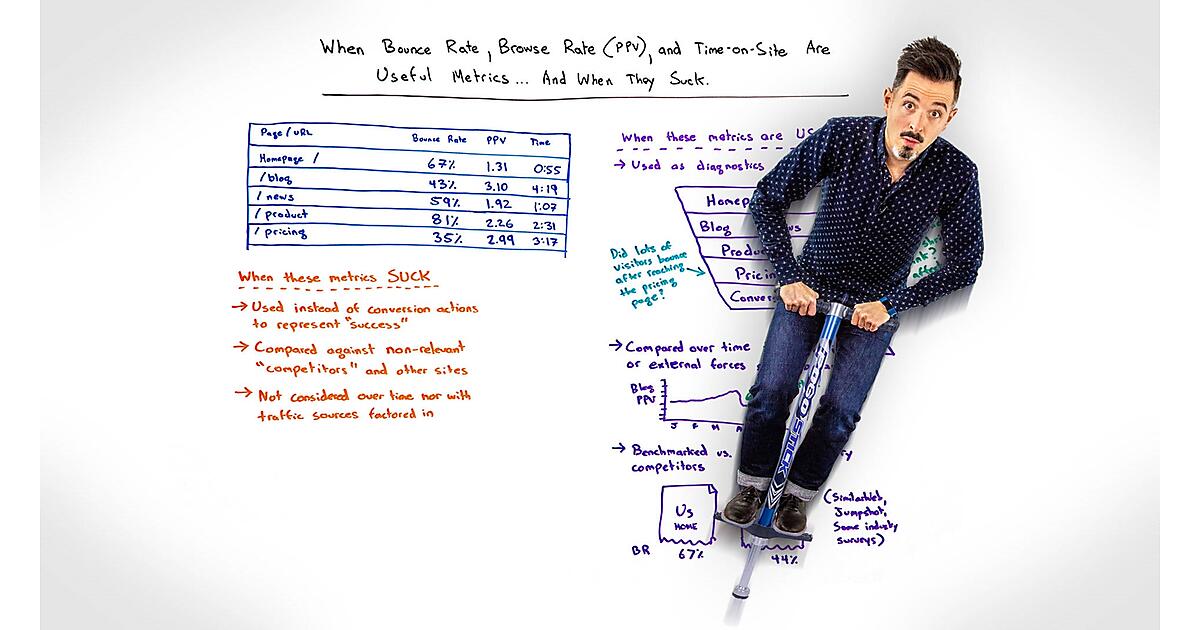 When Bounce Rate, Browse Rate (PPV), and Time-on-Site Are
Useful Metrics... And When They Suck.
Page/URL Bounce Rate PPV Time
Homepage / 67% 1.31 0:55
/blog 43% 3.10 4:19
/news 59% 1.92 1:07
/product 81% 2.26 2:31
/pricing 35% 2.99 3:17
When these metrics SUCK
→ Used instead of conversion actions
to represent "success"
→ Compared against non-relevant
"competitors" and other sites
→ Not considered over time nor with
traffic sources factored in
When these metrics are
→ Used as diagnostics
Blog
Did lots of
visitors bounce
after reaching
the pricing
page?
→ Compared over time
or external forces
Blog
PPV
J F M A
→ Benchmarked vs.
competitors
Us
HOME
BR 67% 44%
(SimilarWeb,
Jumpshot,
Some industry
surveys)
POGO STICK